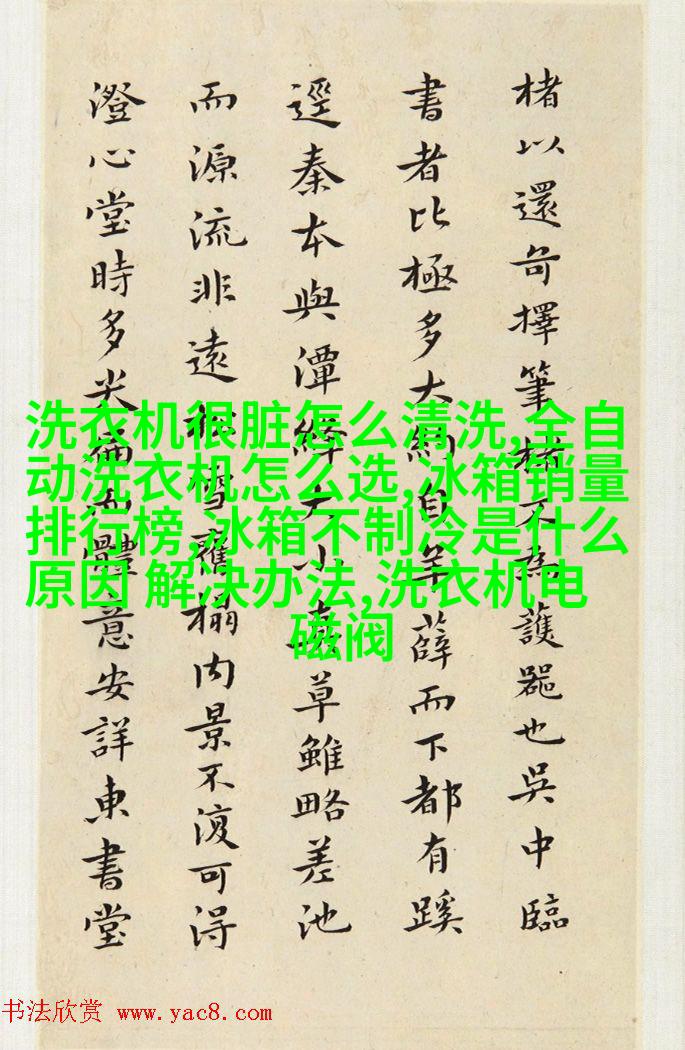 楮以還奇擇筆楮不為護器也吳中臨
書者比極多大約自羊薛而下都有蹊
逕秦本與潭絳大小真草雖略差池
而源流非遠松雪舊榻內景不復可得
澄心堂時多體意安詳東書堂
洗衣机很脏怎么清洗,全自
动洗衣机怎么选,冰箱销量
排行榜,冰箱不制冷是什么
原因 解决办法,洗衣机电
磁阀
书法欣赏 www.yac8.com